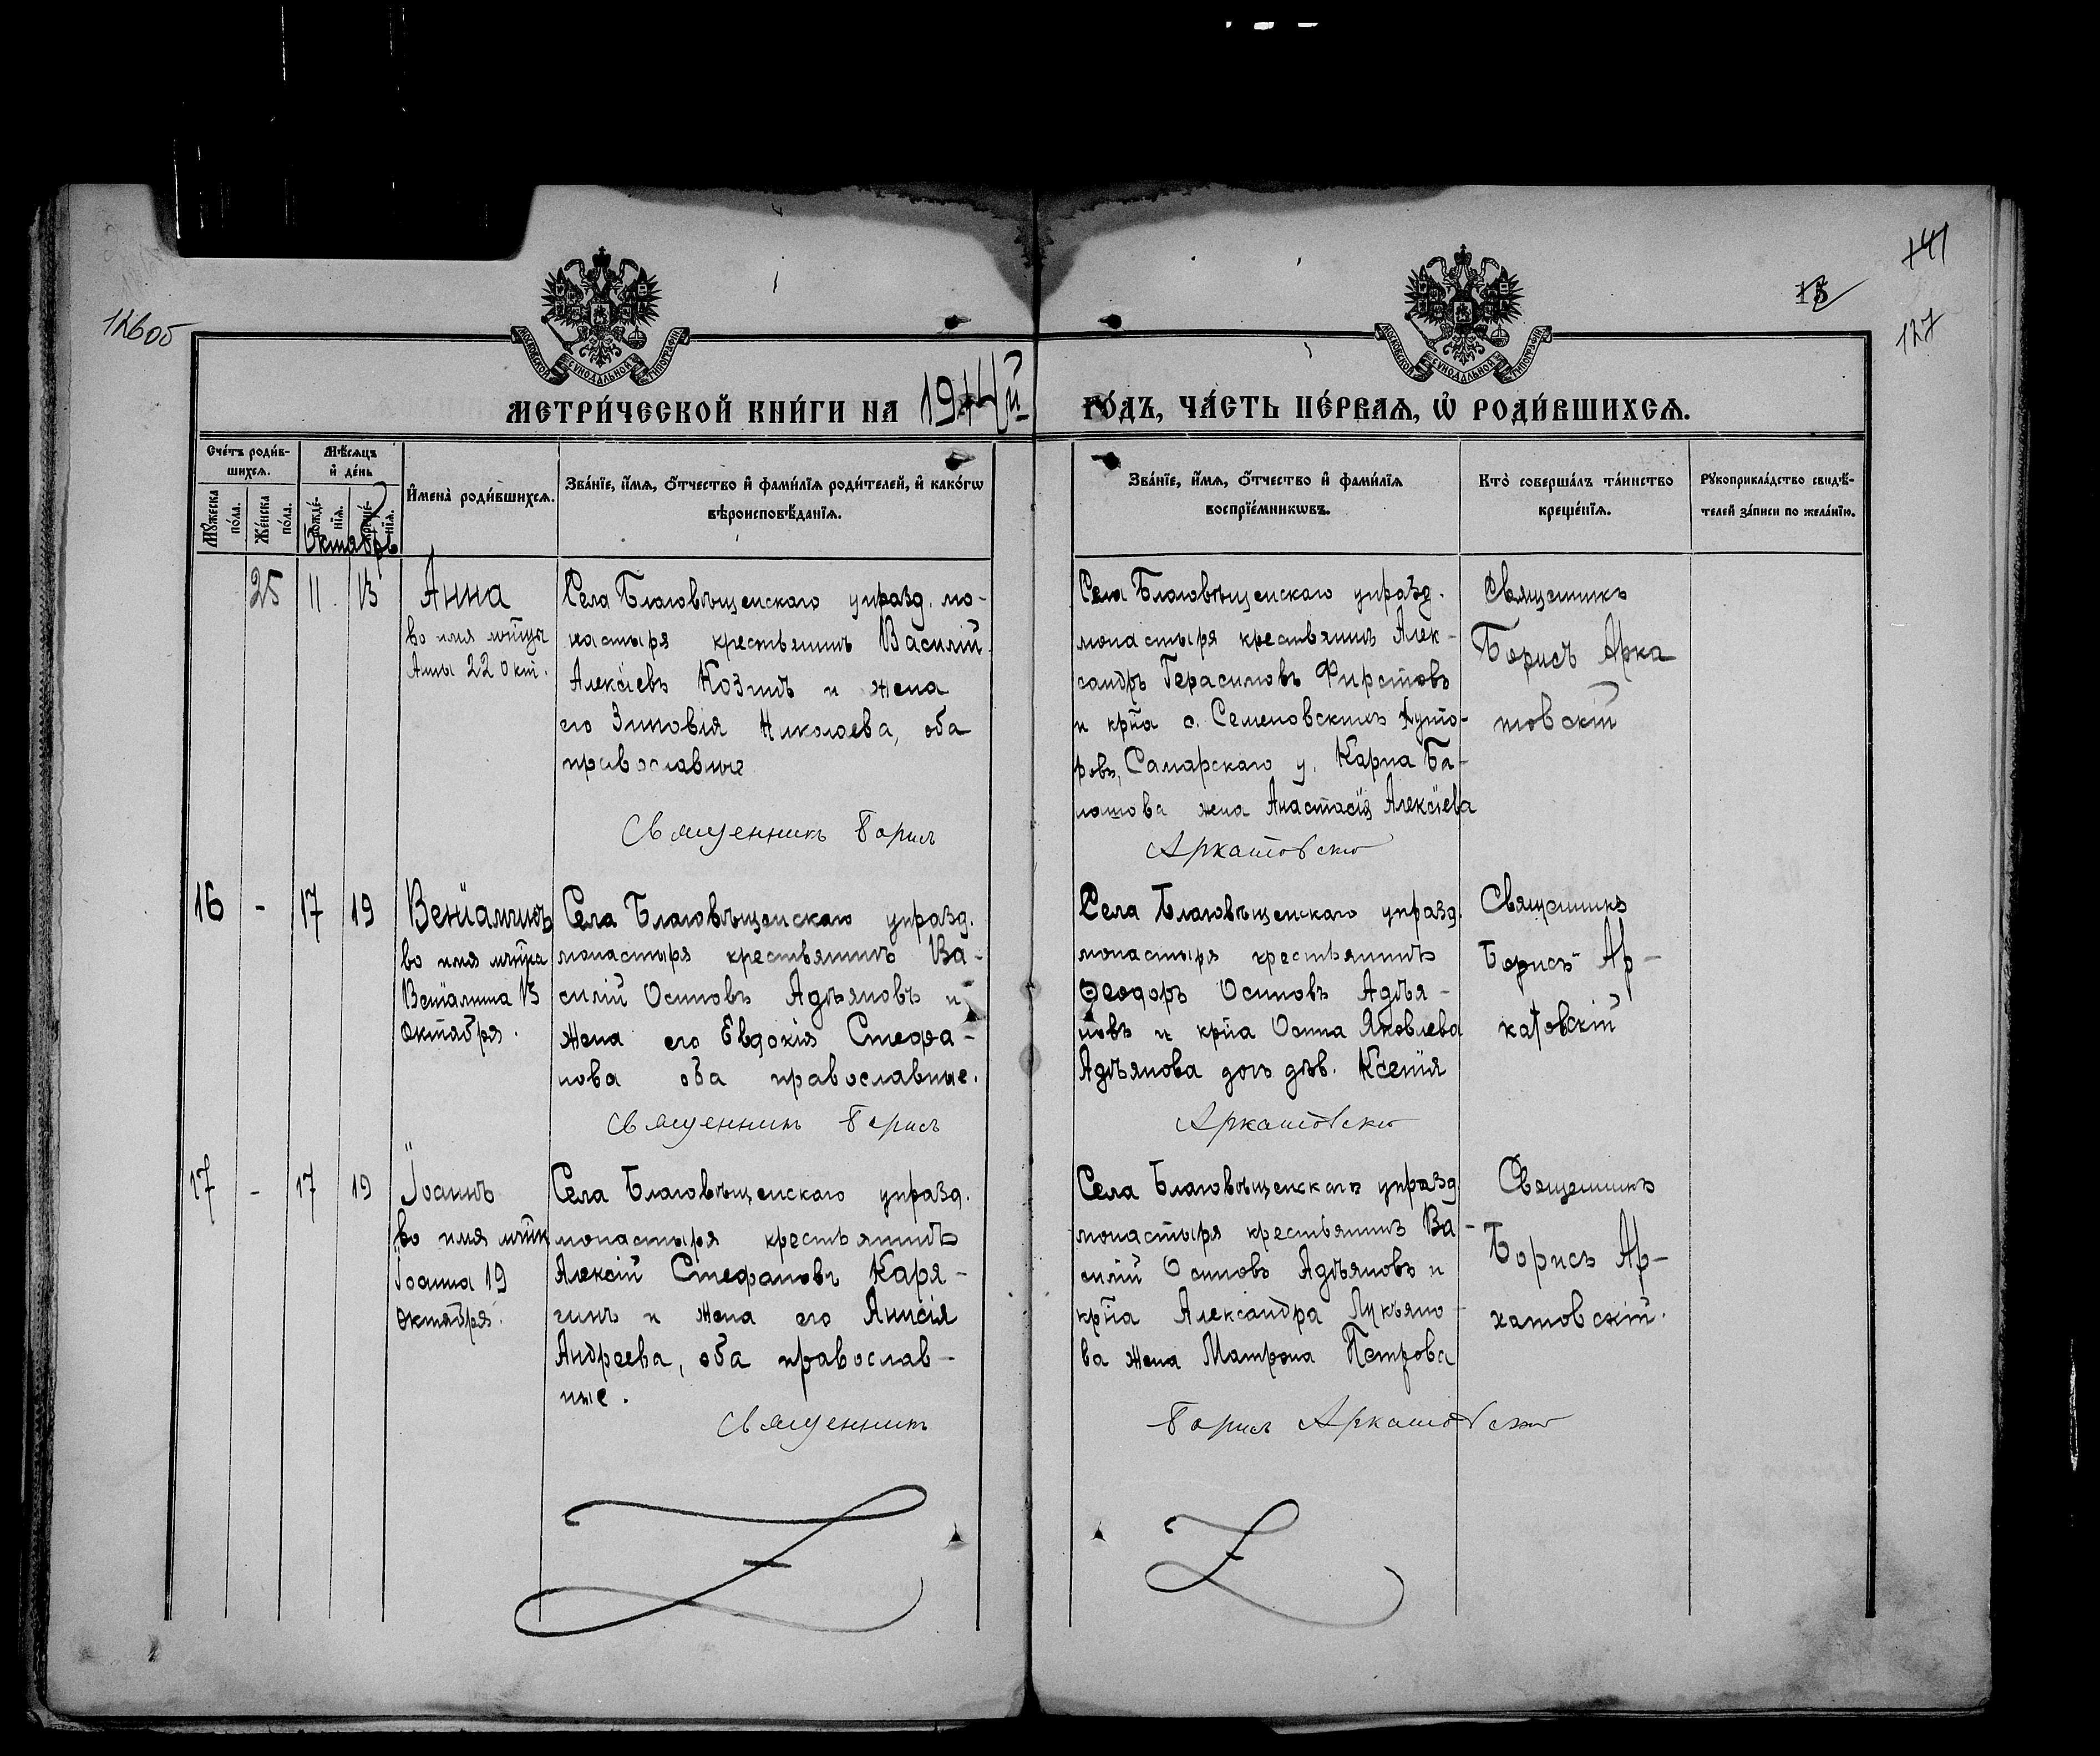 126об
127
МОСКОВСКОЙ СѴНОДАЛЬНОЙ ТИПОГРАФІИ
МОСКОВСКОЙ СѴНОДАЛЬНОЙ ТИПОГРАФІИ
МЕТРИ́ЧЕСКОЙ КНИ́ГИ НА 1914й ГО́ДЪ, ЧА́СТЬ ПЕ́РВАѦ, Ѡ҆ РОДИ́ВШИХСѦ.
Сче́тъ роди́в-
шихсѧ.
Мꙋжеска по́ла.
Же́нска по́ла.
Мѣ́сѧцъ
и҆ де́нь
рожде́-
нїѧ.
креще́-
нїѧ.
Октябрь
И҆мена̀ роди́вшихсѧ.
Зва́нїе, и҆́мѧ, ѻ҆́тчество и҆ фами́лїѧ роди́телей, и҆ како́гѡ
вѣроисповѣ́данїѧ.
Зва́нїе, и҆́мѧ, ѻ҆́тчество и҆ фами́лїѧ
воспрїе́мникѡвъ.
Кто̀ соверша́лъ та́инство
креще́нїѧ.
Рꙋкоприкла́дство свидѣ́-
телей за́писи по жела́нїю.
25 11 13 Анна
во имя мчцы
Анны 22 окт.
Села Благовѣщенскаго упразд. мо-
настыря крестьянинъ Василій
Алексіевъ Козинъ и жена
его Зиновія Николаева, оба
православные
Села Благовѣщенскаго упразд.
монастыря крестьянинъ Алек-
сандръ Герасимовъ Фирстовъ
и крна с. Семеновскихъ Хуто-
ровъ, Самарскаго у. Карпа Ба-
шова жена Анастасія Алексіева
Священникъ
Борисъ Арка
товскій
Священникъ Борисъ Аркатовскій
16 - 17 19 Веніаминъ
во имя мчнка
Веніамина 13
октября.
Села Благовѣщенскаго упразд.
монастыря крестьянинъ Ва-
силій Осиповъ Адѣяновъ и
жена его Евдокія Стефа-
нова оба православные.
Села Благовѣщенскаго упразд.
монастыря крестьянинъ
Ѳеодоръ Осиповъ Адѣя-
новъ и крна Осипа Яковлева
Адѣянова дочь дѣв. Ксенія
Священникъ
Борисъ Ар-
катовскій
Священникъ Борисъ Аркатовскій
17 - 17 19 Іоаннъ
во имя мчнк
Іоанна 19
октября.
Села Благовѣщенскаго упразд.
монастыря крестьянинъ
Алексій Стефановъ Каря-
гинъ и жена его Анисія
Андреева, оба православ-
ные.
Села Благовѣщенскаго упразд
монастыря крестьянинъ Ва-
силій Осиповъ Адѣяновъ и
крна Александра Лукьяно-
ва жена Матрона Петрова
Священникъ
Борисъ Ар-
катовскій.
Священникъ Борисъ Аркатовскій